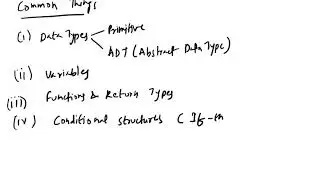 Common Things
(i) Data Types
Primitive
ADT (Abstract Data Type)
(ii) Variables
(iii) Functions & Return Types
(iv) Conditional structures ( If-th